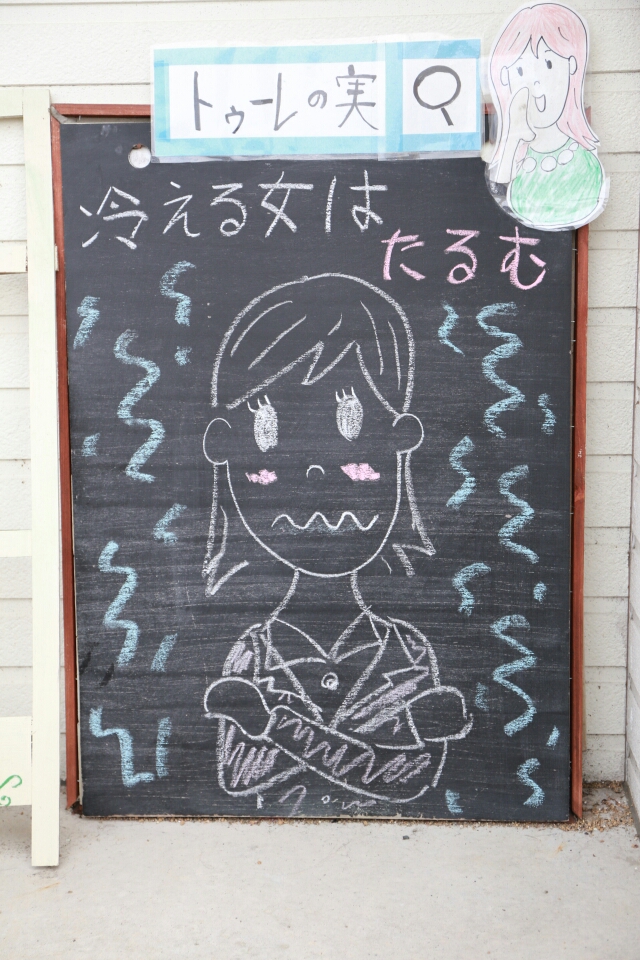 トゥーレの実
冷える女は
たるむ